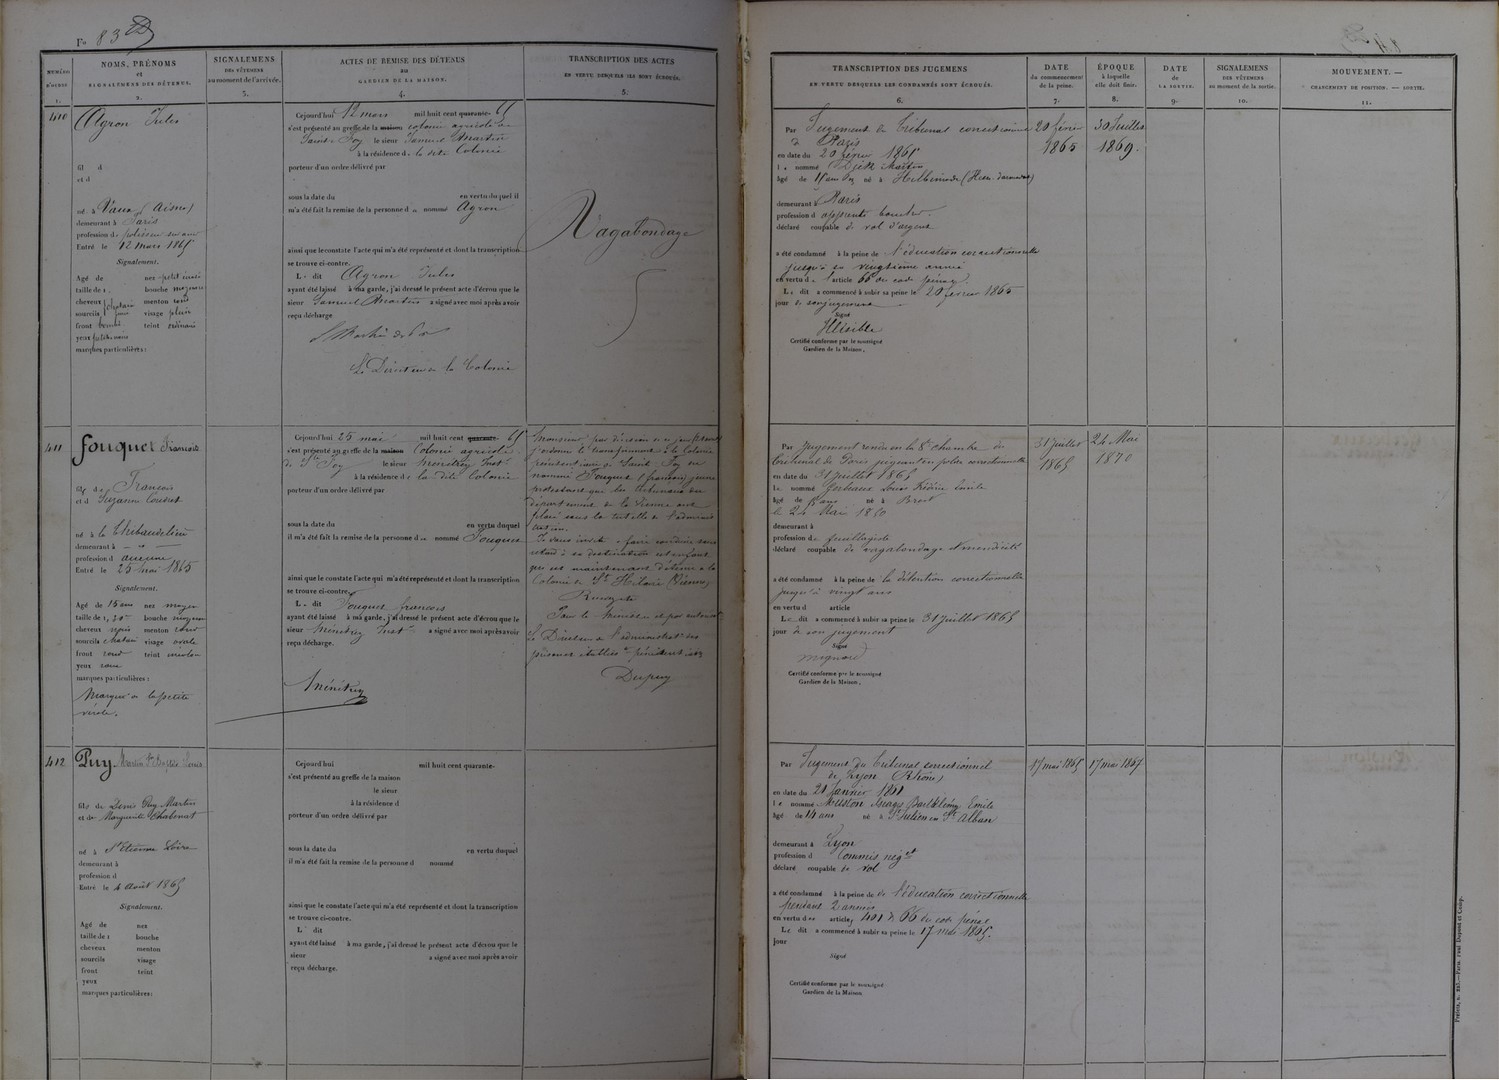 Fo 83
NUMÉRO D'ORDRE 1.
NOMS, PRÉNOMS
et
SIGNALEMENS DES DÉTENUS.
2.
SIGNALEMENS
DES VÊTEMENS
au moment de l'arrivée.
3.
ACTES DE REMISE DES DÉTENUS
au
GARDIEN DE LA MAISON.
4.
TRANSCRIPTION DES ACTES
EN VERTU DESQUELS ILS SONT ÉCROUÉS.
5.
410
Agron Jules
fil d
et d
né à Vaux (Aisne)
demeurant à Paris
profession de polisseur sur
Entré le 12 mars 1865
Signalement.
Agé de nez petit
taille de 1, bouche moyenne
cheveux châtain menton rond
sourcils visage plein
front bombé teint
yeux
marques particulières :
Cejourd'hui 12 mars mil huit cent quarante- 65
s'est présenté au greffe de la maison colonie agricole de
Sainte Foy le sieur Samuel Martin
à la résidence de la dite Colonie
porteur d'un ordre délivré par
sous la date du en vertu duquel il
m'a été fait la remise de la personne du nommé Agron
ainsi que le constate l'acte qui m'a été représenté et dont la transcription
se trouve ci-contre.
Le dit Agron Jules
ayant été laissé à ma garde, j'ai dressé le présent acte d'écrou que le
sieur Samuel Martin a signé avec moi après avoir
reçu décharge
Le Directeur de la Colonie
Vagabondage
411
Fouquet François
fils de François
et d Suzanne
né à la Thibaudelière
demeurant à
profession d aucune
Entré le 25 mai 1865
Signalement.
Agé de 15 ans nez moyen
taille de 1, bouche moyenne
cheveux noirs menton rond
sourcils chatain visage oval
front rond teint
yeux
marques particulières :
Marqué de la petite
vérole.
Cejourd'hui 25 mai mil huit cent quarante- 65
s'est présenté au greffe de la maison Colonie agricole
de Ste Foy le sieur Ménétrey Inst.
à la résidence de la dite Colonie
porteur d'un ordre délivré par
sous la date du en vertu duquel
il m'a été fait la remise de la personne du nommé Fouquet
ainsi que le constate l'acte qui m'a été représenté et dont la transcription
se trouve ci-contre.
Le dit Fouquet françois
ayant été laissé à ma garde, j'ai dressé le présent acte d'écrou que le
sieur Ménétrey Inst. a signé avec moi après avoir
reçu décharge.
Ménétrey
Monsieur par décision de ce jour
j'ordonne le transfèrement à la Colonie
pénitentiaire de Sainte Foy du
nommé Fouquet (françois) jeune
protestant que les tribunaux du
département de la Vienne ont
placé sous la tutelle de l'administ
ration.
Je vous invite à faire conduire sans
retard à sa destination cet enfant
qui est maintenant détenu à la
Colonie de St Hilaire (Vienne)
Pour le Ministre et par
Le Directeur de l'administrat. des
prisons et établiss. pénitentiaires
Dupuy
412
Puy Martin Jn Baptiste Louis
fils de Denis Puy Martin
et de Marguerite Chabanat
né à St Etienne Loire
demeurant à
profession d
Entré le 4 Août 1865
Signalement.
Agé de nez
taille de 1 bouche
cheveux menton
sourcils visage
front teint
yeux
marques particulières:
Cejourd'hui mil huit cent quarante-
s'est présenté au greffe de la maison
le sieur
à la résidence d
porteur d'un ordre délivré par
sous la date du en vertu duquel
il m'a été fait la remise de la personne d nommé
ainsi que le constate l'acte qui m'a été représenté et dont la transcription
se trouve ci-contre.
L dit
ayant été laissé à ma garde, j'ai dressé le présent acte d'écrou que le
sieur a signé avec moi après avoir
reçu décharge.
TRANSCRIPTION DES JUGEMENS
EN VERTU DESQUELS LES CONDAMNÉS SONT ÉCROUÉS.
6.
DATE
du commencement
de la peine.
7.
ÉPOQUE
à laquelle
elle doit finir.
8.
DATE
de
LA SORTIE.
9.
SIGNALEMENS
DES VÊTEMENS
au moment de la sortie.
10.
MOUVEMENT. —
CHANGEMENT DE POSITION. — SORTIE.
11.
Par Jugement du Tribunal correctionnel
de Paris
en date du 20 février 1865
le nommé Martin
âgé de né à
demeurant à Paris
profession d apprenti boucher.
déclaré coupable de vol d'argent
a été condamné à la peine de l'éducation correctionnelle
jusqu'à sa vingtième année
en vertu de l'article 66 du code pénal.
Le dit a commencé à subir sa peine le 20 février 1865
jour de son jugement
Signé
Illisible
Certifié conforme par le soussigné
Gardien de la Maison,
20 février
1865
30 Juillet
1869.
Par Jugement rendu en la 8e chambre du
tribunal de Paris jugeant en police correctionnelle
en date du 31 juillet 1865
le nommé Louis Frédéric Emile
âgé de ans né à Brest
le 24 Mai 1850
demeurant à
profession de
déclaré coupable de vagabondage et mendicité
a été condamné à la peine de la détention correctionnelle
jusqu'à vingt ans
en vertu d article
Le dit a commencé à subir sa peine le 31 juillet 1865
jour de son jugement
Signé
Mignard
Certifié conforme par le soussigné
Gardien de la Maison,
31 juillet
1865
24 Mai
1870
Par Jugement du Tribunal correctionnel
de Lyon (Rhône)
en date du 21 Janvier
le nommé Barthélémy Emile
âgé de 14 ans né à St Julien en St Alban
demeurant à Lyon
profession d Commis négt
déclaré coupable de vol
a été condamné à la peine de de l'éducation correctionnelle
pendant 2 années
en vertu des articles 401 & 66 du code pénal
Le dit a commencé à subir sa peine le 17 mai 1865.
jour
Signé
Certifié conforme par le soussigné
Gardien de la Maison
17 mai 1865
17 mai 1867